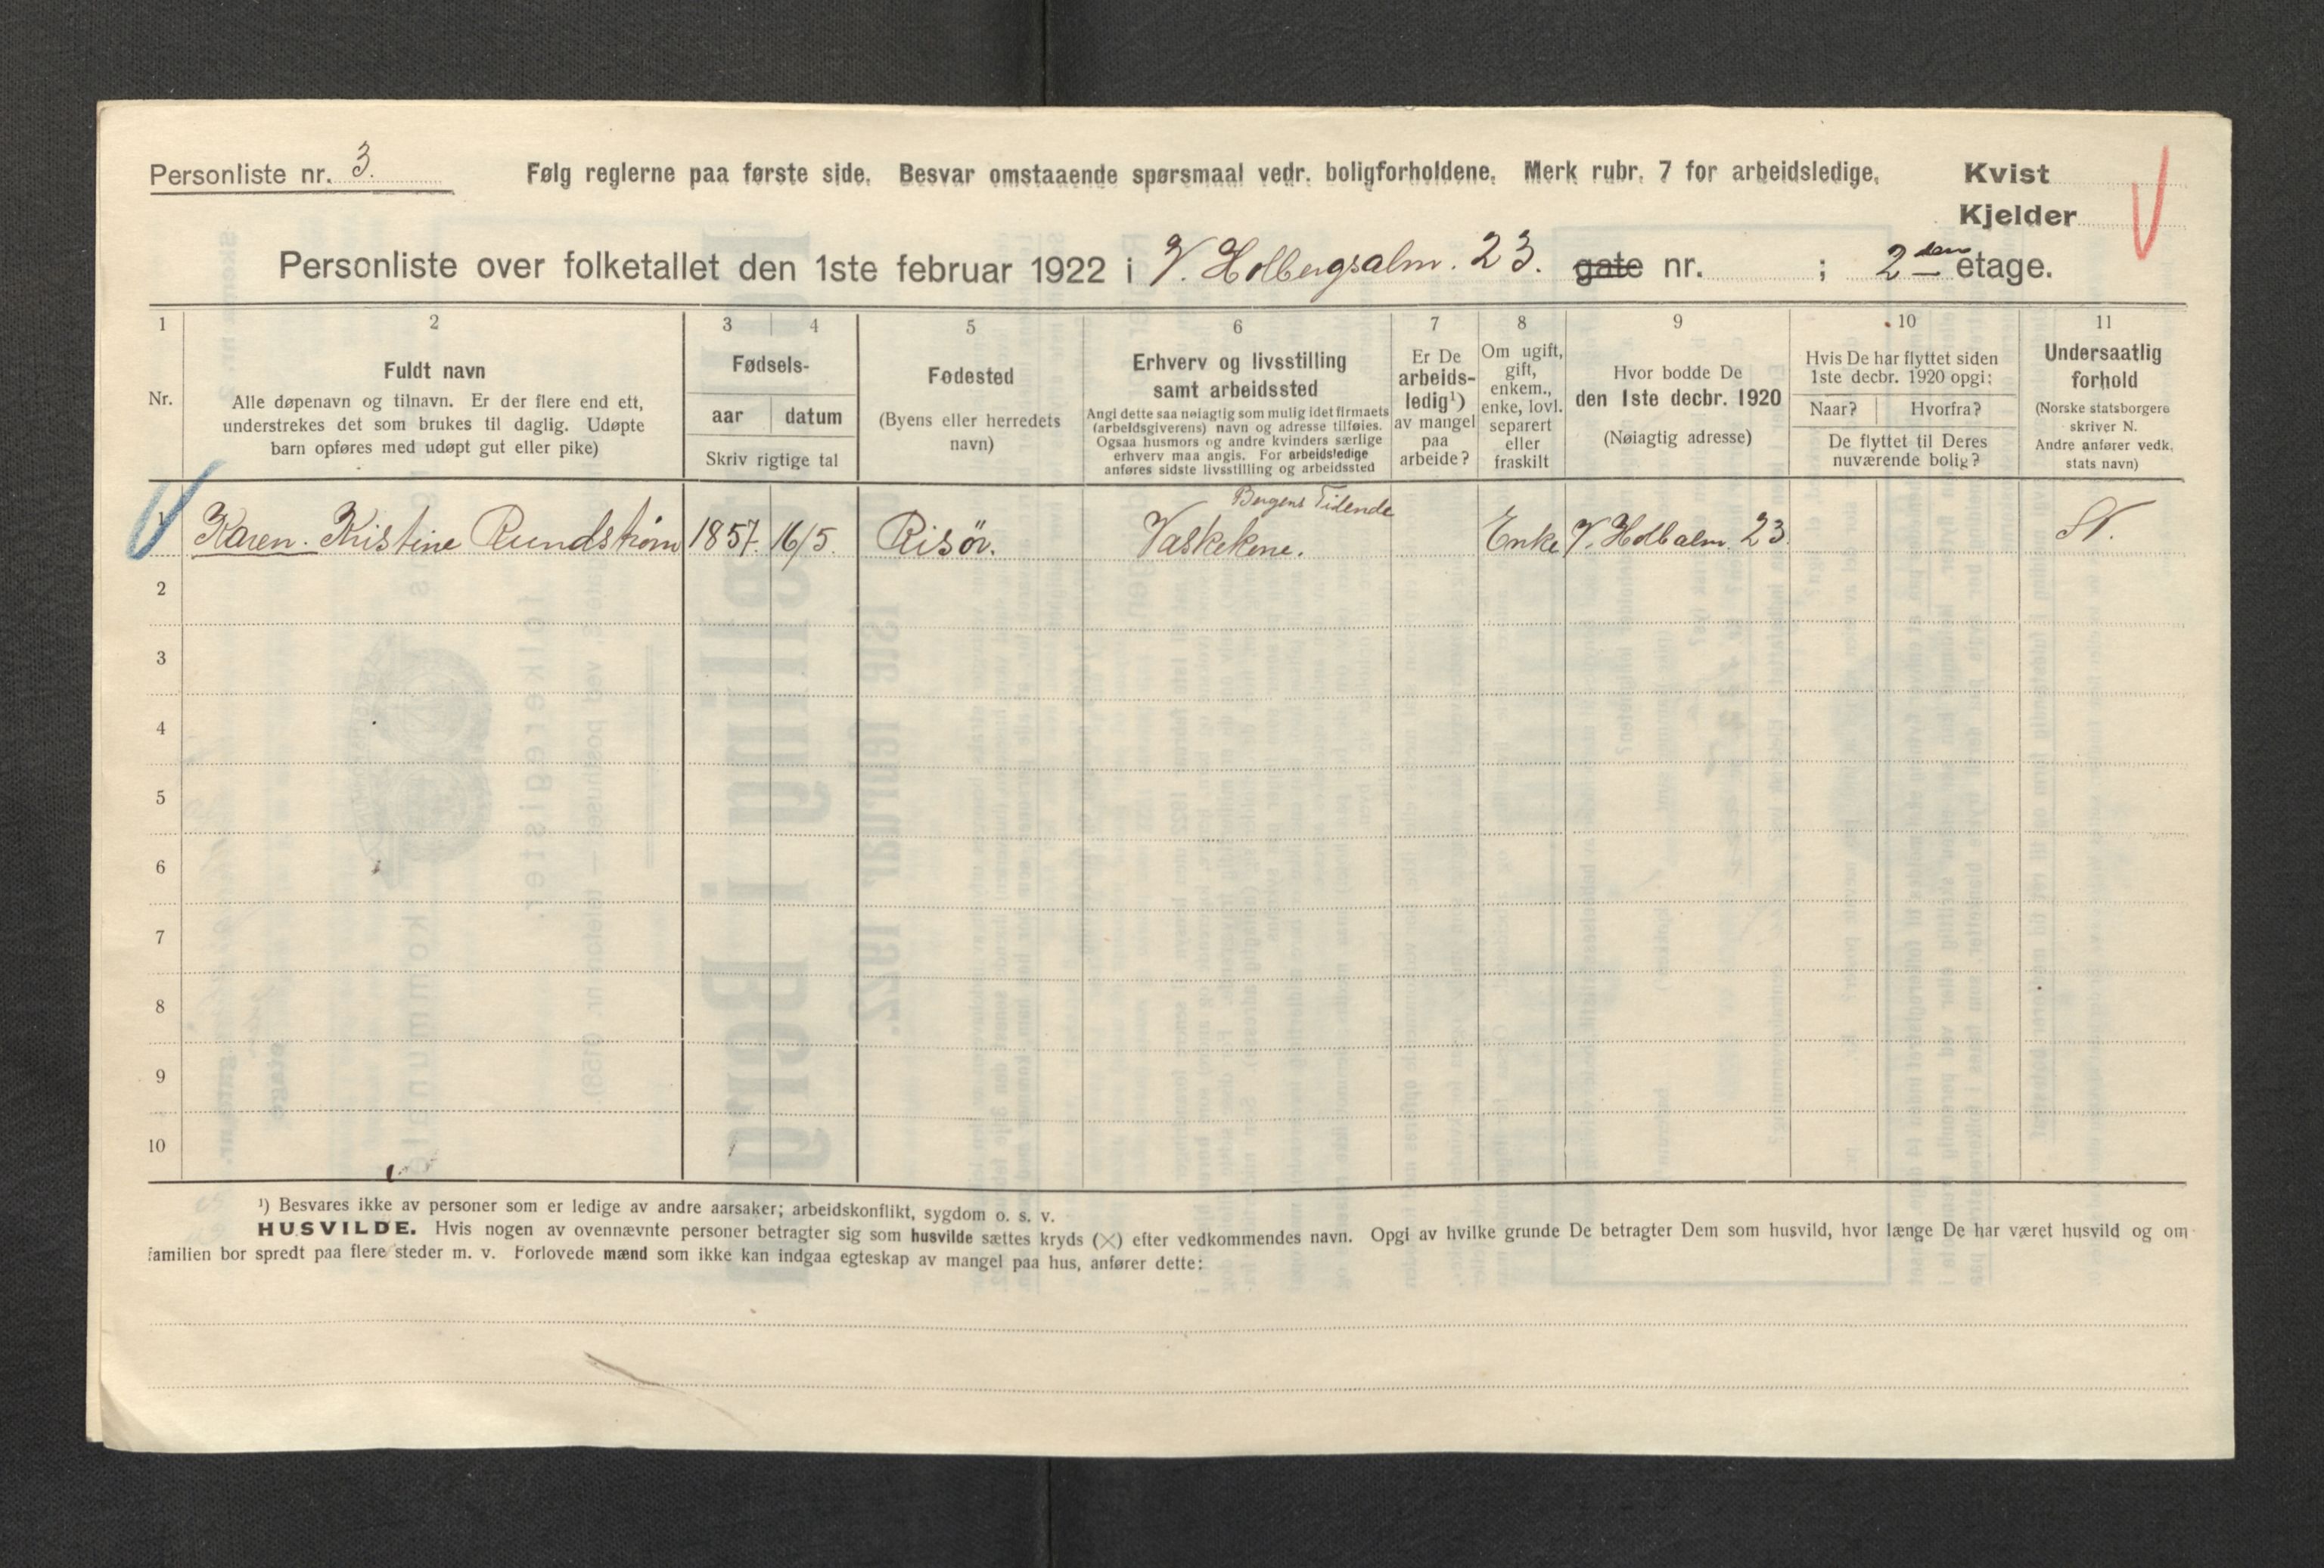 Personliste nr. 3.
Følg reglerne paa første side. Besvar omstaaende spørsmaal vedr. boligforholdene. Merk rubr. 7 for arbeidsledige.
Kvist
Kjelder
Personliste over folketallet den 1ste februar 1922 i V. Holbergsalm. 23. gate nr. ; 2den etage.
1 2 3 4 5 6 7 8 9 10 11
Nr.
Fuldt navn
Alle døpenavn og tilnavn. Er der flere end ett,
understrekes det som brukes til daglig. Udøpte
barn opføres med udøpt gut eller pike)
Fødsels-
aar datum
Skriv rigtige tal
Fødested
(Byens eller herredets
navn)
Erhverv og livsstilling
samt arbeidssted
Angi dette saa nøiagtig som mulig idet firmaets
(arbeidsgiverens) navn og adresse tilføies.
Ogsaa husmors og andre kvinders særlige
erhverv maa angis. For arbeidsledige
anføres sidste livsstilling og arbeidssted
Er De
arbeids-
ledig¹)
av mangel
paa
arbeide?
Om ugift,
gift,
enkem.,
enke, lovl.
separert
eller
fraskilt
Hvor bodde De
den 1ste decbr. 1920
(Nøiagtig adresse)
Hvis De har flyttet siden
1ste decbr. 1920 opgi:
Naar? Hvorfra?
De flyttet til Deres
nuværende bolig?
Undersaatlig
forhold
(Norske statsborgere
skriver N.
Andre anfører vedk.
stats navn)
Bergens Tidende
1 Karen. Kristine Rundstrøm 1857. 16/5. Risör. Vaskekone. Enke V. Holbalm. 23 N.
2
3
4
5
6
7
8
9
10
¹) Besvares ikke av personer som er ledige av andre aarsaker; arbeidskonflikt, sygdom o. s. v.
HUSVILDE. Hvis nogen av ovennævnte personer betragter sig som husvilde sættes kryds (×) efter vedkommendes navn. Opgi av hvilke grunde De betragter Dem som husvild, hvor længe De har været husvild og om
familien bor spredt paa flere steder m. v. Forlovede mænd som ikke kan indgaa egteskap av mangel paa hus, anfører dette: